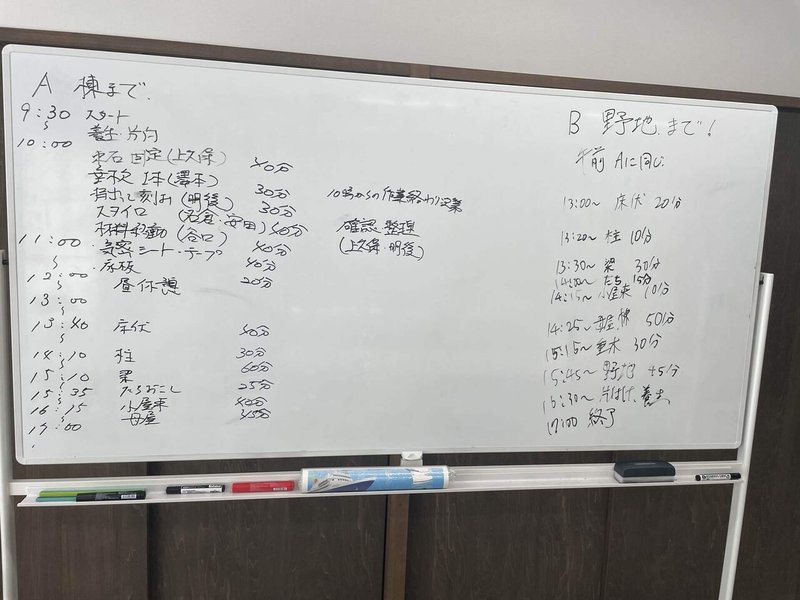 A 棟まで、
9:30 スタート
養生・片付
10:00
束石 固定(上久保) 40分
1本
墨出し、刻み(明後) 30分
スタイロ 30分
材料移動(谷口) 40分
11:00 気密シート・テープ 40分
床板 40分
12:00 昼休憩 20分
13:00
13:40 床伏 40分
14:10 柱 30分
15:10 梁 60分
15:35 たちおこし 25分
16:15 小屋束 40分
17:00 母屋 45分
10時からの作業終わり次第
確認・整理
(上久保・明後)
B 野地、まで!
午前 Aに同じ
13:00〜 床伏 20分
13:20〜 柱 10分
13:30〜 梁 30分
14:00〜 たち 15分
14:15〜 小屋束 10分
14:25〜 母屋、棟 50分
15:15〜 垂木 30分
15:45〜 野地 45分
16:30〜 片付け、養生
17:00 終了